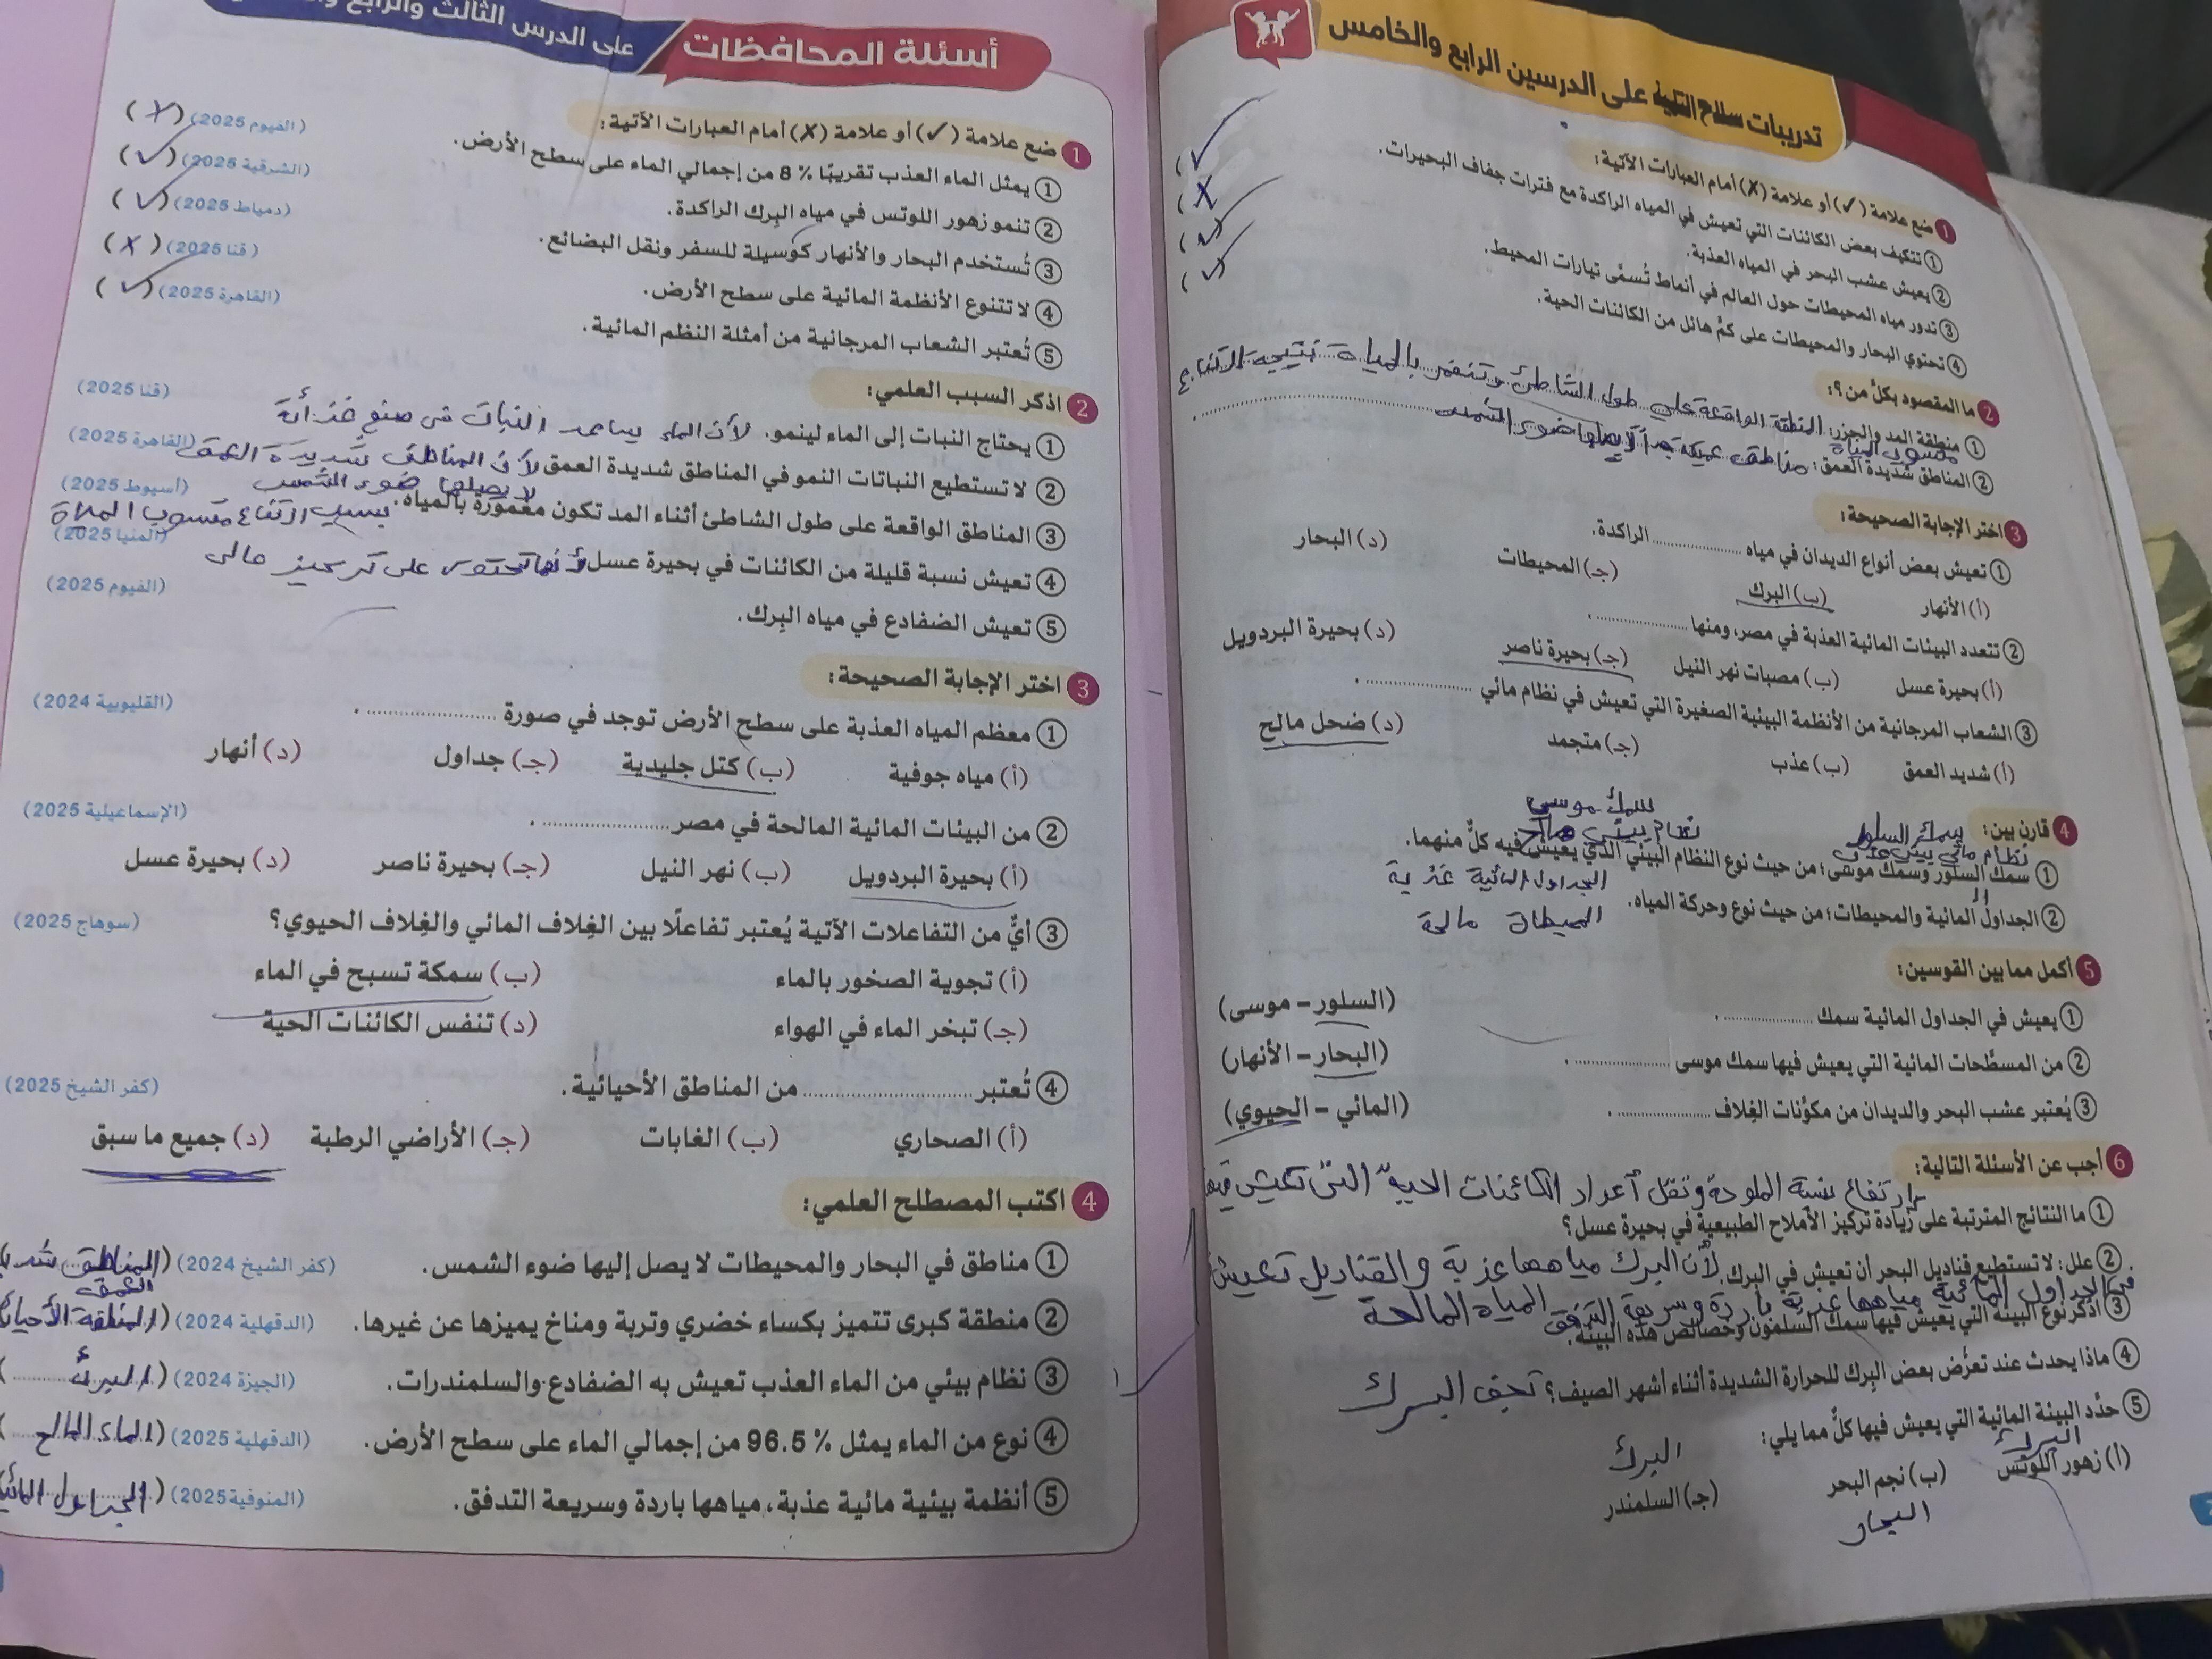 تدريبات سلاح التلميذ على الدرسين الرابع والخامس
1 ضع علامة (✓) أو علامة (✗) أمام العبارات الآتية:
① تتكيف بعض الكائنات التي تعيش في المياه الراكدة مع فترات جفاف البحيرات. (✓
② يعيش عشب البحر في المياه العذبة. (✗
③ تدور مياه المحيطات حول العالم في أنماط تُسمَّى تيارات المحيط. (✓
④ تحتوي البحار والمحيطات على كمٍّ هائل من الكائنات الحية. (✓
2 ما المقصود بكلٍّ من؟:
① منطقة المد والجزر: المنطقة الواقعة على طول الشاطئ وتنغمر بالمياة نتيجة ارتفاع
منسوب المياة
② المناطق شديدة العمق: مناطق عميقة جدا لا يصلها ضوء الشمس
3 اختر الإجابة الصحيحة:
① تعيش بعض أنواع الديدان في مياه .................. الراكدة.
(أ) الأنهار (ب) البرك (جـ) المحيطات (د) البحار
② تتعدد البيئات المائية العذبة في مصر، ومنها .................. .
(أ) بحيرة عسل (ب) مصبات نهر النيل (جـ) بحيرة ناصر (د) بحيرة البردويل
③ الشعاب المرجانية من الأنظمة البيئية الصغيرة التي تعيش في نظام مائي .................. .
(أ) شديد العمق (ب) عذب (جـ) متجمد (د) ضحل مالح
4 قارن بين: سمك السلور سمك موسى
نظام مائي بيئي عذب نظام بيئي مالح
① سمك السلور وسمك موسى؛ من حيث نوع النظام البيئي الذي يعيش فيه كلٌّ منهما.
② الجداول المائية والمحيطات؛ من حيث نوع وحركة المياه. الجداول المائية عذبة
المحيطات مالحة
5 أكمل مما بين القوسين:
① يعيش في الجداول المائية سمك .................. . (السلور – موسى)
② من المسطَّحات المائية التي يعيش فيها سمك موسى .................. . (البحار – الأنهار)
③ يُعتبر عشب البحر والديدان من مكوِّنات الغِلاف .................. . (المائي – الحيوي)
6 أجب عن الأسئلة التالية:
ارتفاع نسبة الملوحة وتقل أعداد الكائنات الحية التى تعيش فيها
① ما النتائج المترتبة على زيادة تركيز الأملاح الطبيعية في بحيرة عسل؟
② علل: لا تستطيع قناديل البحر أن تعيش في البرك. لأن البرك مياهها عذبة والقناديل تعيش
المياه المالحة
فى الجداول المائية مياهها عذبة باردة وسريعة التدفق
③ اذكر نوع البيئة التي يعيش فيها سمك السلمون وخصائص هذه البيئة.
④ ماذا يحدث عند تعرُّض بعض البِرك للحرارة الشديدة أثناء أشهر الصيف؟ تجف البرك
⑤ حدِّد البيئة المائية التي يعيش فيها كلٌّ مما يلي:
البرك البرك
(أ) زهور اللوتس (ب) نجم البحر (جـ) السلمندر
البحار
أسئلة المحافظات على الدرس الثالث والرابع
1 ضع علامة (✓) أو علامة (✗) أمام العبارات الآتية:
① يمثل الماء العذب تقريبًا 8 % من إجمالي الماء على سطح الأرض. (الفيوم 2025) (✗)
② تنمو زهور اللوتس في مياه البِرك الراكدة. (الشرقية 2025) (✓)
③ تُستخدم البحار والأنهار كوسيلة للسفر ونقل البضائع. (دمياط 2025) (✓)
④ لا تتنوع الأنظمة المائية على سطح الأرض. (قنا 2025) (✗)
⑤ تُعتبر الشعاب المرجانية من أمثلة النظم المائية. (القاهرة 2025) (✓)
2 اذكر السبب العلمي:
① يحتاج النبات إلى الماء لينمو. لأن الماء يساعد النبات فى صنع غذائة (قنا 2025)
② لا تستطيع النباتات النمو في المناطق شديدة العمق لأن المناطق شديدة العمق (القاهرة 2025)
لا يصلها ضوء الشمس
③ المناطق الواقعة على طول الشاطئ أثناء المد تكون مغمورة بالمياه. بسبب ارتفاع منسوب المياة (أسيوط 2025)
④ تعيش نسبة قليلة من الكائنات في بحيرة عسل لأنها تحتوى على تركيز عالى (المنيا 2025)
⑤ تعيش الضفادع في مياه البِرك. (الفيوم 2025)
3 اختر الإجابة الصحيحة:
① معظم المياه العذبة على سطح الأرض توجد في صورة .................. . (القليوبية 2024)
(أ) مياه جوفية (ب) كتل جليدية (جـ) جداول (د) أنهار
② من البيئات المائية المالحة في مصر .................. . (الإسماعيلية 2025)
(أ) بحيرة البردويل (ب) نهر النيل (جـ) بحيرة ناصر (د) بحيرة عسل
③ أيٌّ من التفاعلات الآتية يُعتبر تفاعلًا بين الغِلاف المائي والغِلاف الحيوي؟ (سوهاج 2025)
(أ) تجوية الصخور بالماء (ب) سمكة تسبح في الماء
(جـ) تبخر الماء في الهواء (د) تنفس الكائنات الحية
④ تُعتبر .................. من المناطق الأحيائية. (كفر الشيخ 2025)
(أ) الصحاري (ب) الغابات (جـ) الأراضي الرطبة (د) جميع ما سبق
4 اكتب المصطلح العلمي:
① مناطق في البحار والمحيطات لا يصل إليها ضوء الشمس. (كفر الشيخ 2024) (المناطق
العمق
② منطقة كبرى تتميز بكساء خضري وتربة ومناخ يميزها عن غيرها. (الدقهلية 2024) (المنطقة
③ نظام بيئي من الماء العذب تعيش به الضفادع والسلمندرات. (الجيزة 2024) (البرك)
④ نوع من الماء يمثل 96.5 % من إجمالي الماء على سطح الأرض. (الدقهلية 2025) (الماء المالح)
⑤ أنظمة بيئية مائية عذبة، مياهها باردة وسريعة التدفق. (المنوفية 2025) (الجداول